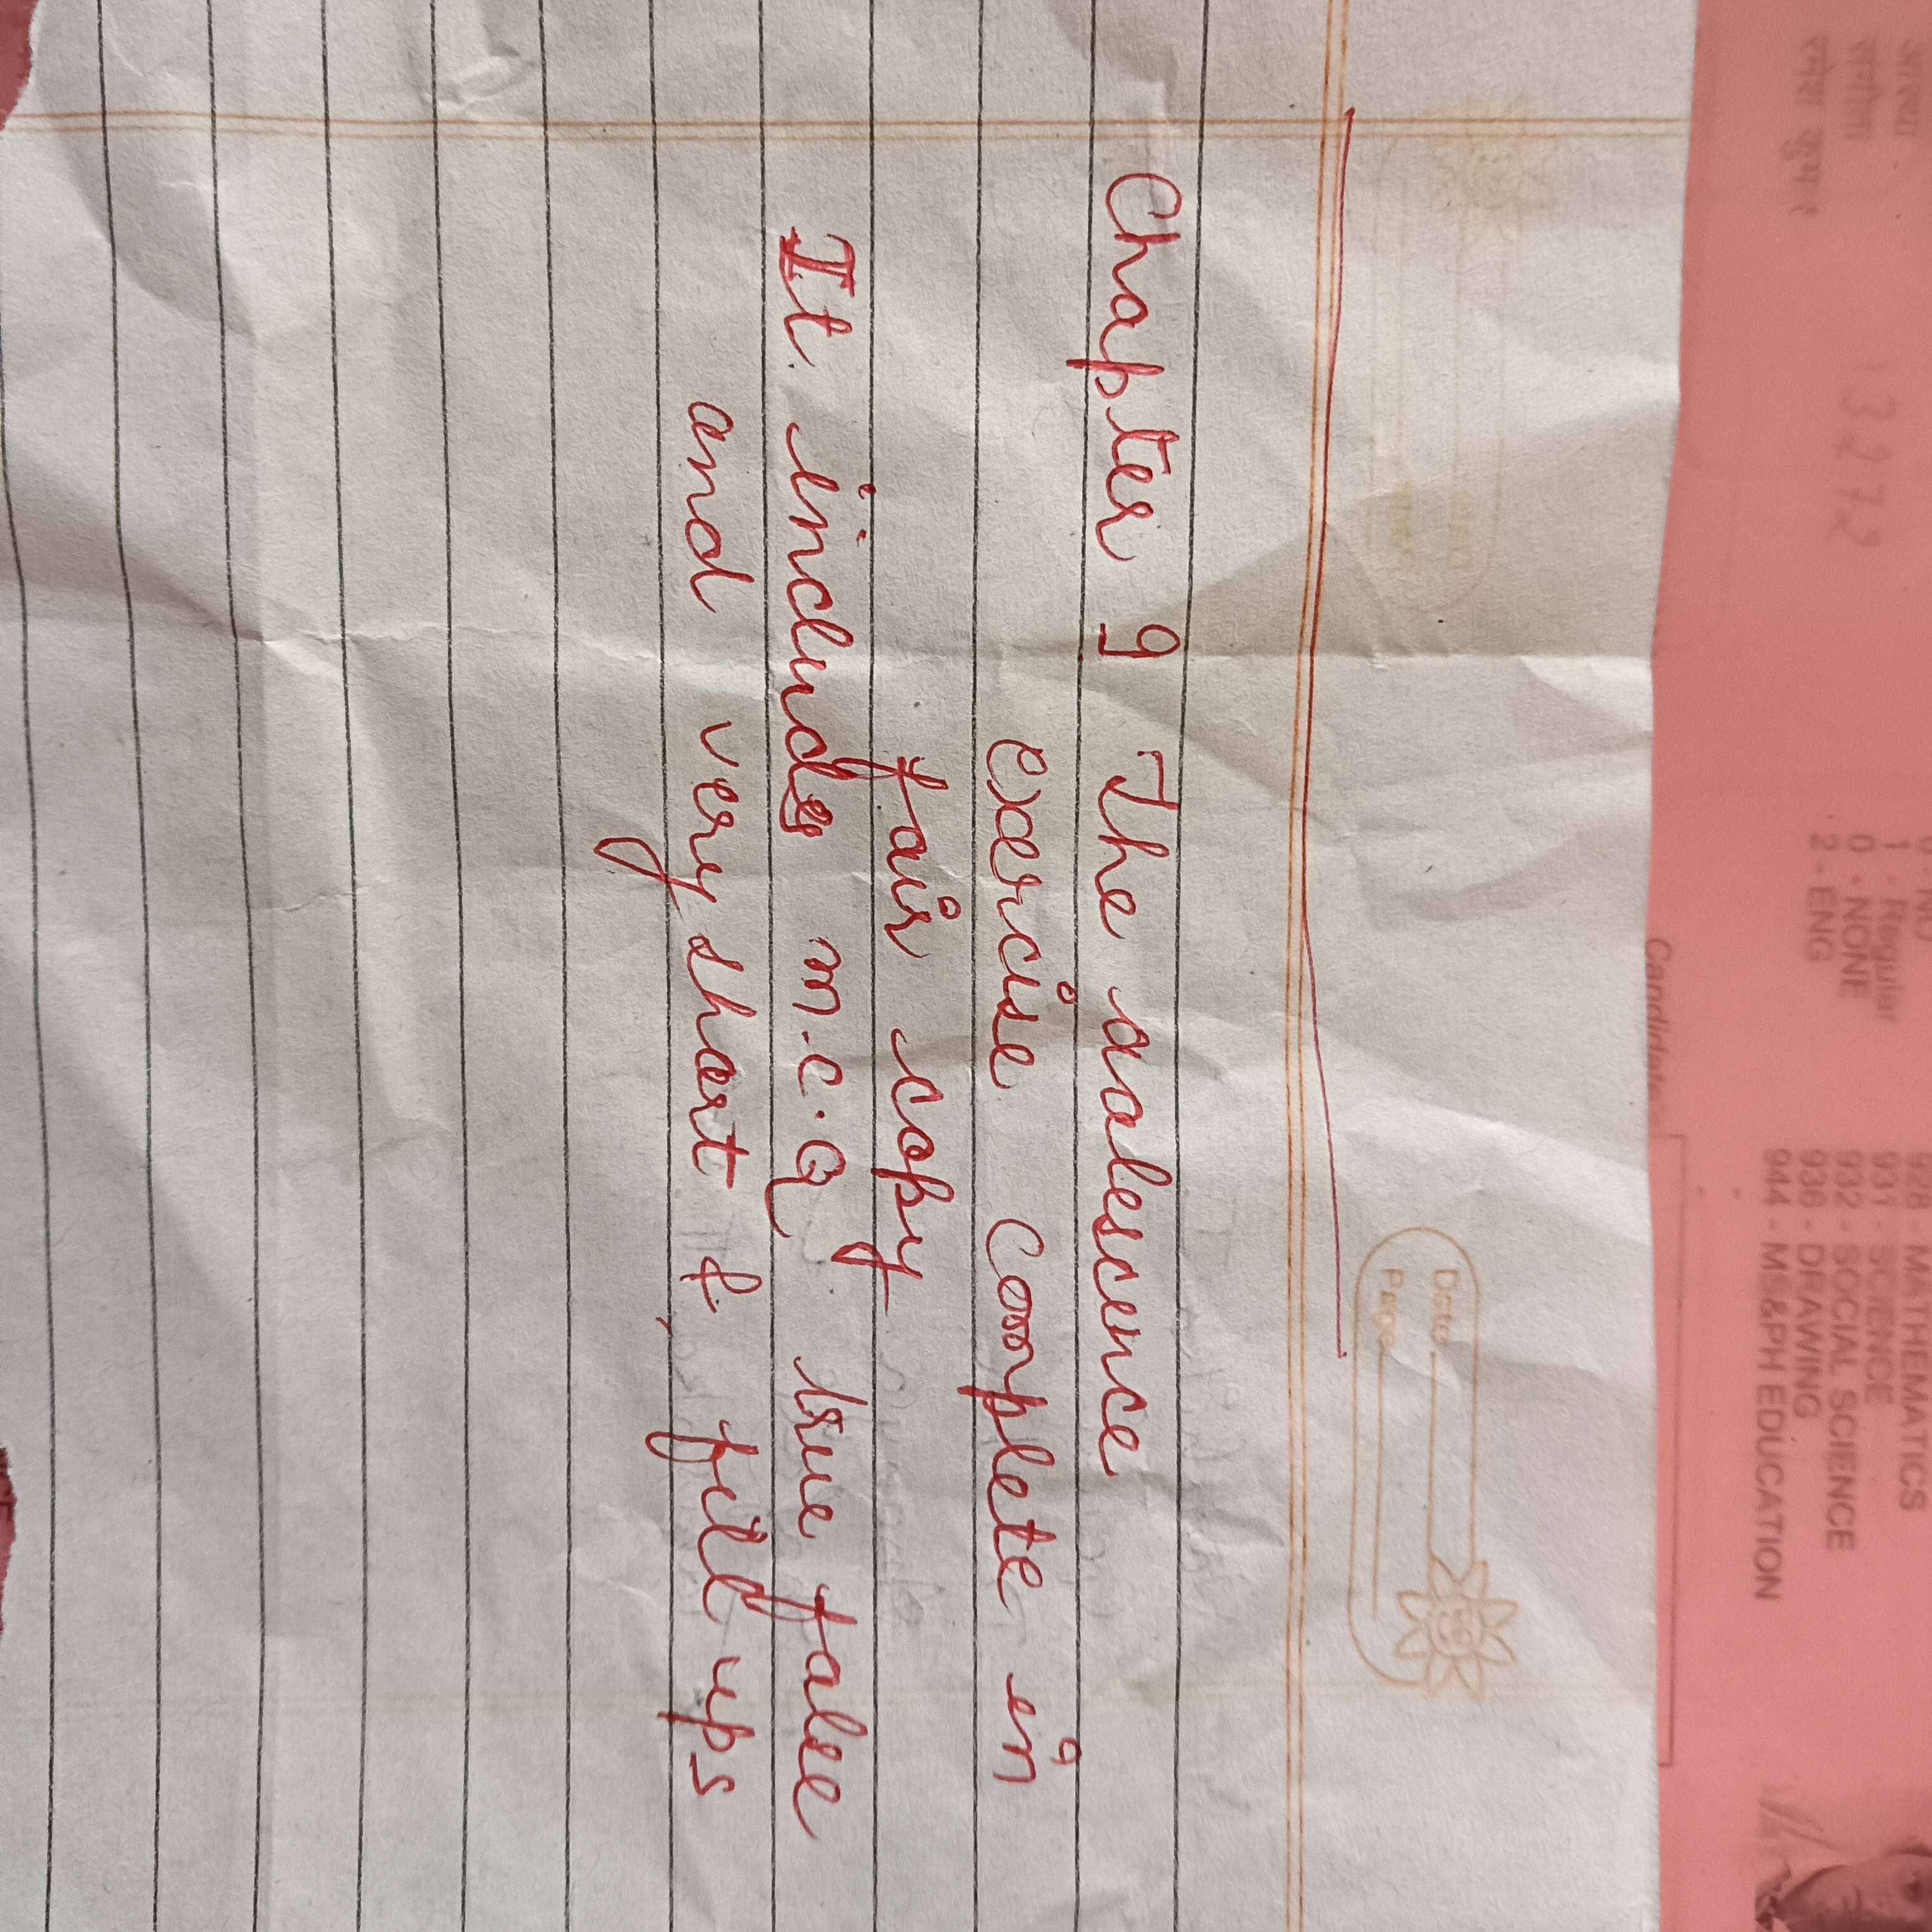 आचार्या
संगीता
रमेश कुमार
13272
1 - Regular
0 - NONE
2 - ENG
Candidate
928 - MATHEMATICS
931 - SCIENCE
932 - SOCIAL SCIENCE
936 - DRAWING
944 - MS&PH EDUCATION
Date
Page
Chapter 9 The adalescence
exercise Complete in
fair copy
It includes m.c.Q true falee
and very shart & fill ups